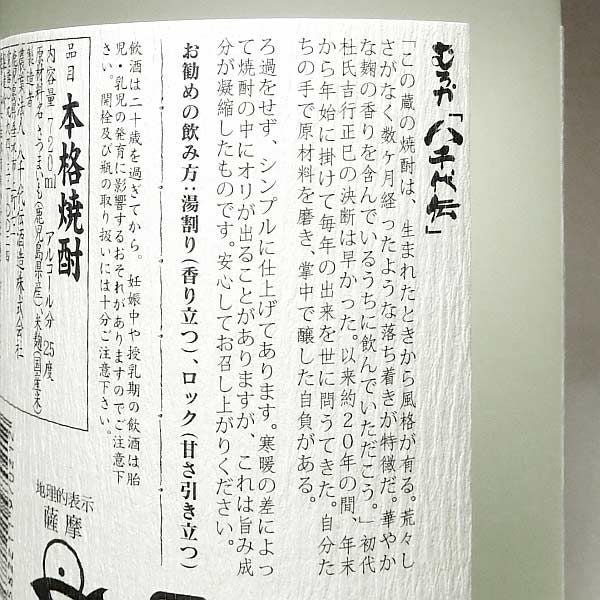 むろか「八千代伝」
「この蔵の焼酎は、生まれたときから風格が有る。荒々し
さがなく数ヶ月経ったような落ち着きが特徴だ。華やか
な麹の香りを含んでいるうちに飲んでいただこう。」初代
杜氏吉行正巳の決断は早かった。以来約20年の間、年末
から年始に掛けて毎年の出来を世に問うてきた。自分た
ちの手で原材料を磨き、掌中で醸した自負がある。
ろ過をせず、シンプルに仕上げてあります。寒暖の差によっ
て焼酎の中にオリが出ることがありますが、これは旨み成
分が凝縮したものです。安心してお召し上がりください。
お勧めの飲み方:湯割り(香り立つ)、ロック(甘さ引き立つ)
飲酒は二十歳を過ぎてから。妊娠中や授乳期の飲酒は胎
児・乳児の発育に影響するおそれがありますのでご注意下
さい。開栓及び瓶の取り扱いには十分ご注意下さい。
品目 本格焼酎
内容量 720ml アルコール分 25度
原材料名 さつまいも(鹿児島県産) 米麹(国産米)
製造者
農業法人 八千代伝酒造株式会社
地理的表示
薩摩